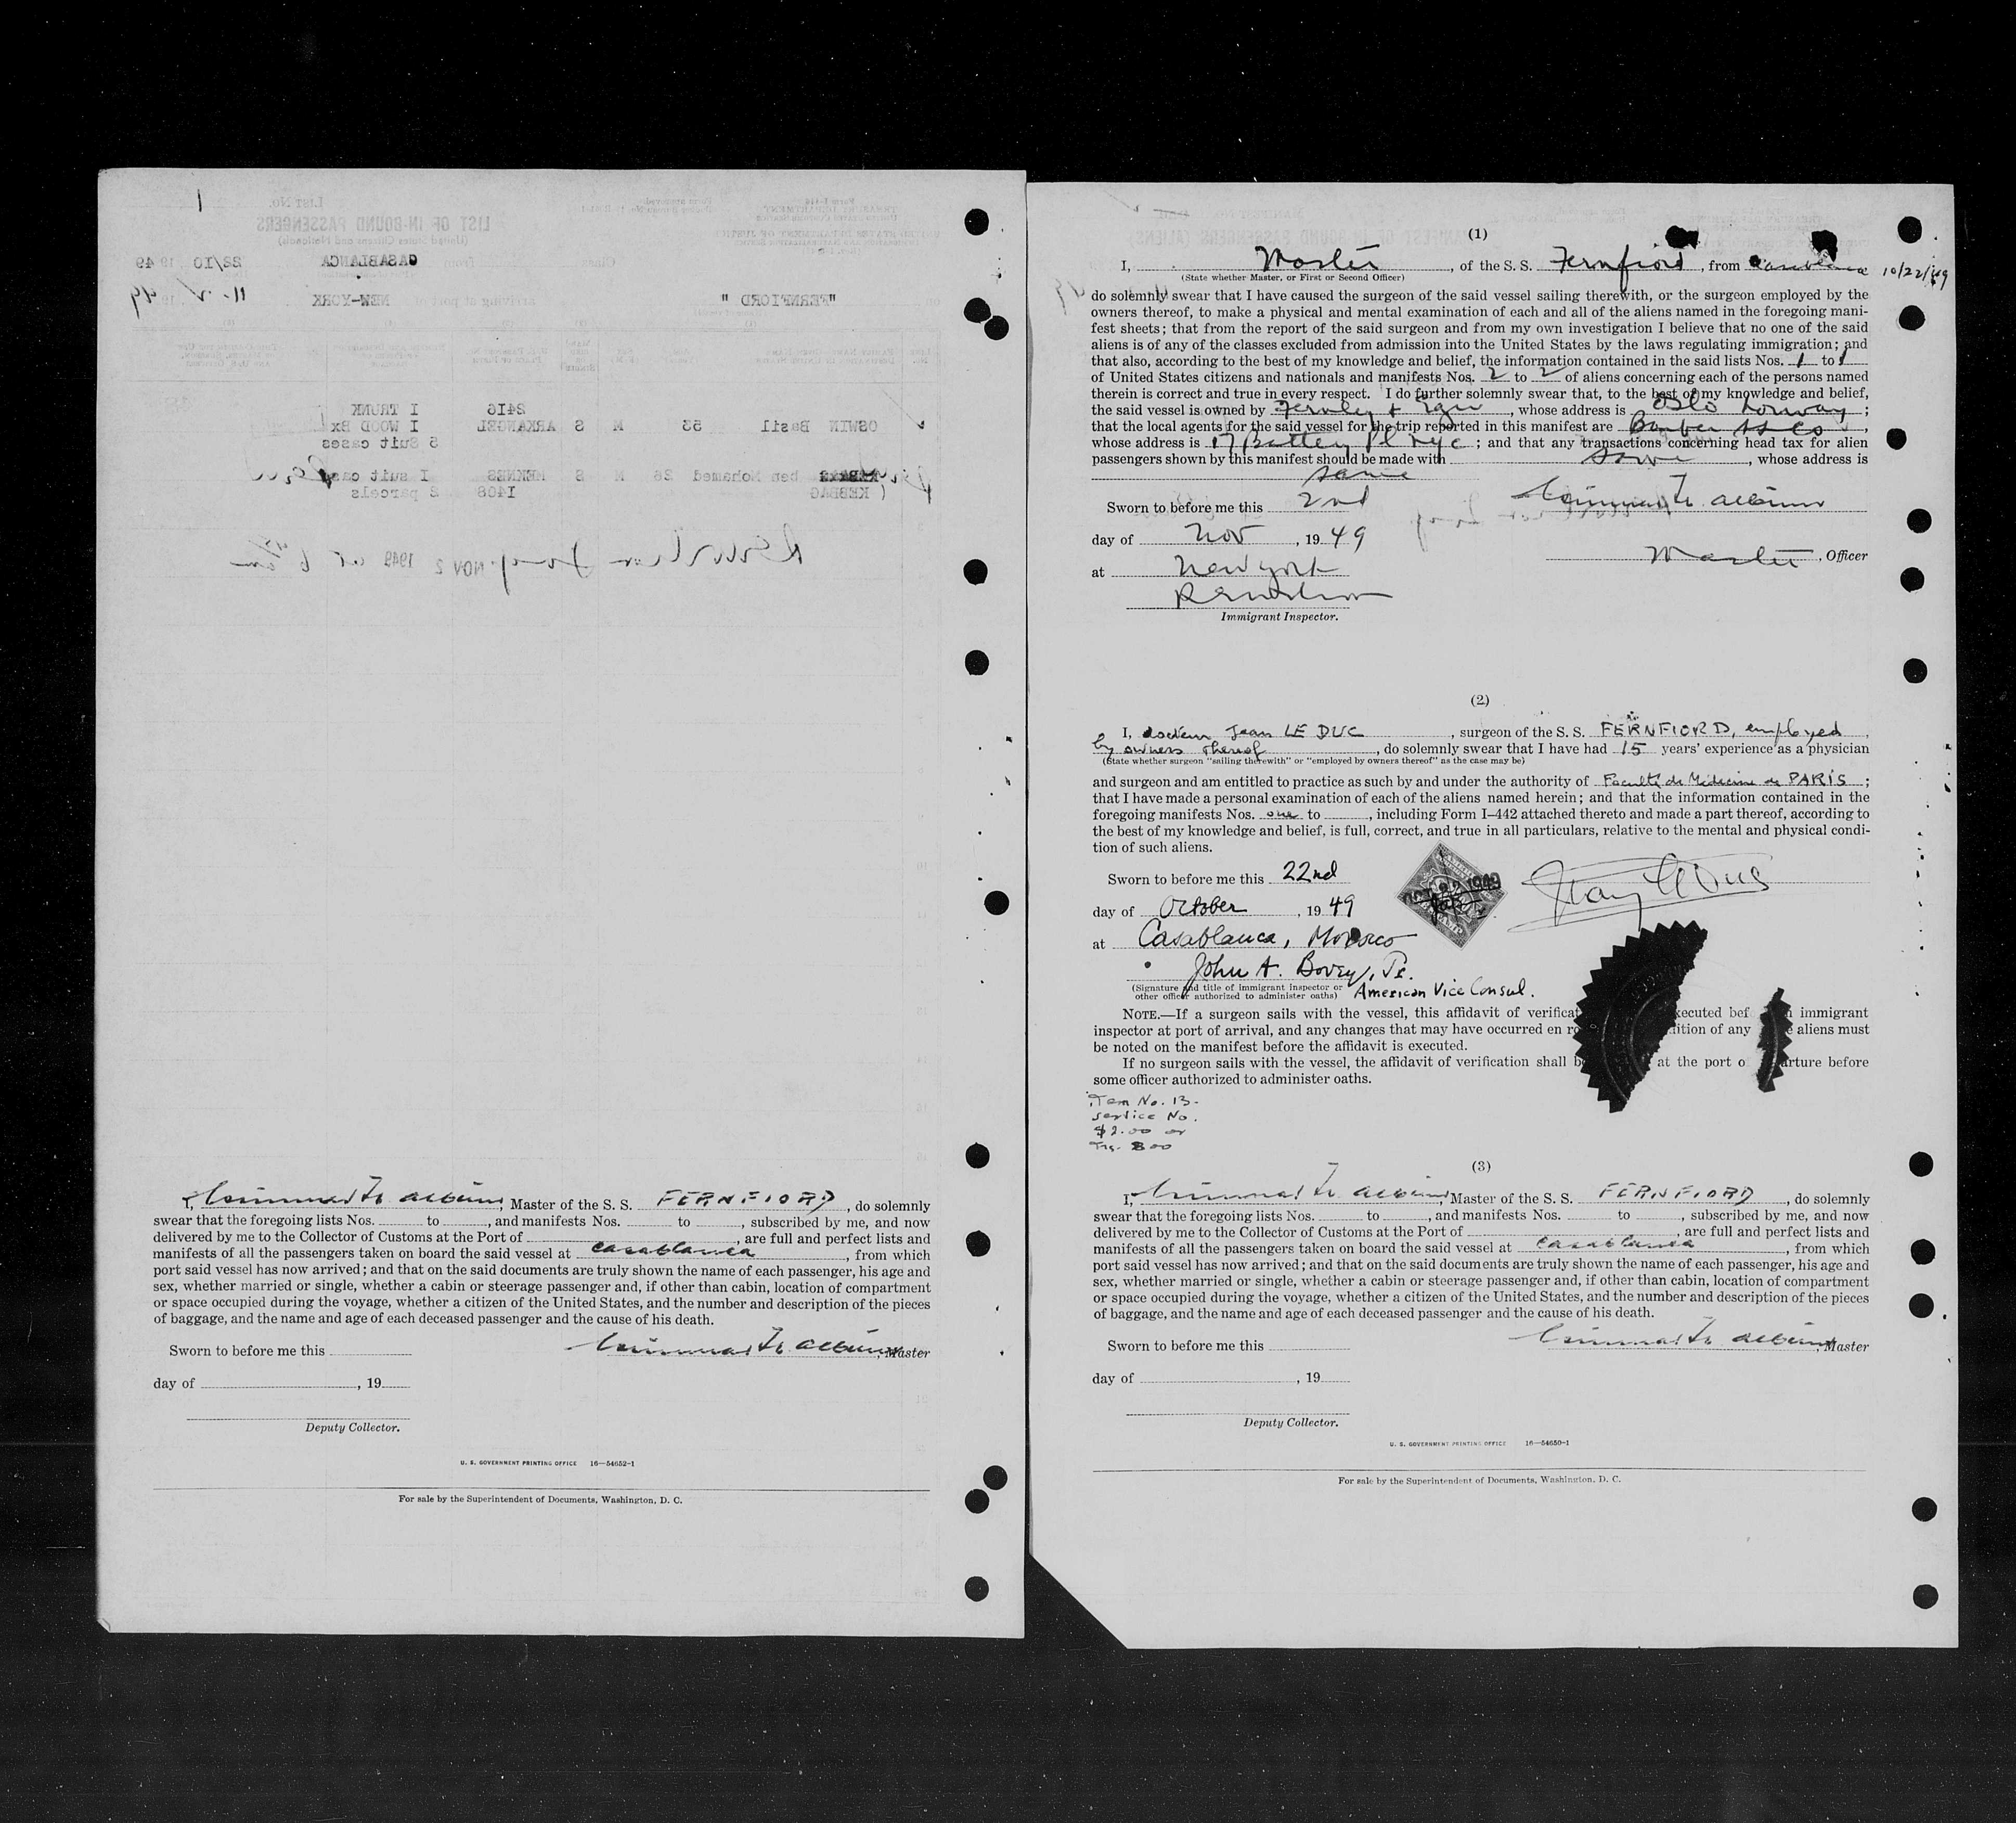 1
List No.
LIST OF IN-BOUND PASSENGERS
(United States Citizens and Nationals)
Class from CASABLANCA 22/10 1949
on "FERNFIORD" arriving at port of NEW-YORK 11-2 1949
2416 I TRUNK
OSWIN Basil 53 M S ARKANGEL I WOOD Bx
5 Suit cases
ben Mohamed 26 M S MEKNES I suit case
( KEBBAG 1408 2 parcels
NOV 2 1949 at 6
I, Master of the S. S. FERNFIORD, do solemnly
swear that the foregoing lists Nos. to , and manifests Nos. to , subscribed by me, and now
delivered by me to the Collector of Customs at the Port of , are full and perfect lists and
manifests of all the passengers taken on board the said vessel at Casablanca, from which
port said vessel has now arrived; and that on the said documents are truly shown the name of each passenger, his age and
sex, whether married or single, whether a cabin or steerage passenger and, if other than cabin, location of compartment
or space occupied during the voyage, whether a citizen of the United States, and the number and description of the pieces
of baggage, and the name and age of each deceased passenger and the cause of his death.
Sworn to before me this , Master
day of , 19
Deputy Collector.
U. S. GOVERNMENT PRINTING OFFICE 16—54652-1
For sale by the Superintendent of Documents, Washington, D. C.
(1)
I, Master, of the S. S. Fernfiord, from Casablanca 10/22/49
(State whether Master, or First or Second Officer)
do solemnly swear that I have caused the surgeon of the said vessel sailing therewith, or the surgeon employed by the
owners thereof, to make a physical and mental examination of each and all of the aliens named in the foregoing mani-
fest sheets; that from the report of the said surgeon and from my own investigation I believe that no one of the said
aliens is of any of the classes excluded from admission into the United States by the laws regulating immigration; and
that also, according to the best of my knowledge and belief, the information contained in the said lists Nos. 1 to 1
of United States citizens and nationals and manifests Nos. 2 to 2 of aliens concerning each of the persons named
therein is correct and true in every respect. I do further solemnly swear that, to the best of my knowledge and belief,
the said vessel is owned by Fernley & Eger, whose address is Oslo Norway;
that the local agents for the said vessel for the trip reported in this manifest are Barber SS Co,
whose address is 17 Battery Pl NYC; and that any transactions concerning head tax for alien
passengers shown by this manifest should be made with same, whose address is
same
Sworn to before me this 2nd
day of Nov, 1949
Master, Officer
at New York
Immigrant Inspector.
(2)
I, docteur Jean LE DUC, surgeon of the S. S. FERNFIORD, employed,
by owners thereof, do solemnly swear that I have had 15 years' experience as a physician
(State whether surgeon "sailing therewith" or "employed by owners thereof" as the case may be)
and surgeon and am entitled to practice as such by and under the authority of Faculté de Médecine de PARIS;
that I have made a personal examination of each of the aliens named herein; and that the information contained in the
foregoing manifests Nos. one to , including Form I-442 attached thereto and made a part thereof, according to
the best of my knowledge and belief, is full, correct, and true in all particulars, relative to the mental and physical condi-
tion of such aliens.
Sworn to before me this 22nd
OCT 22 1949
day of October, 1949
at Casablanca, Morocco
John A. Bovey, Jr.
(Signature and title of immigrant inspector or
other officer authorized to administer oaths) American Vice Consul.
NOTE.—If a surgeon sails with the vessel, this affidavit of verificat xecuted bef immigrant
inspector at port of arrival, and any changes that may have occurred en ro dition of any aliens must
be noted on the manifest before the affidavit is executed.
If no surgeon sails with the vessel, the affidavit of verification shall b at the port o arture before
some officer authorized to administer oaths.
Item No. 13.
Service No.
$2.00 or
Frs. 800
(3)
I, Master of the S. S. FERNFIORD, do solemnly
swear that the foregoing lists Nos. to , and manifests Nos. to , subscribed by me, and now
delivered by me to the Collector of Customs at the Port of , are full and perfect lists and
manifests of all the passengers taken on board the said vessel at Casablanca, from which
port said vessel has now arrived; and that on the said documents are truly shown the name of each passenger, his age and
sex, whether married or single, whether a cabin or steerage passenger and, if other than cabin, location of compartment
or space occupied during the voyage, whether a citizen of the United States, and the number and description of the pieces
of baggage, and the name and age of each deceased passenger and the cause of his death.
Sworn to before me this , Master
day of , 19
Deputy Collector.
U. S. GOVERNMENT PRINTING OFFICE 16—54650-1
For sale by the Superintendent of Documents, Washington, D. C.